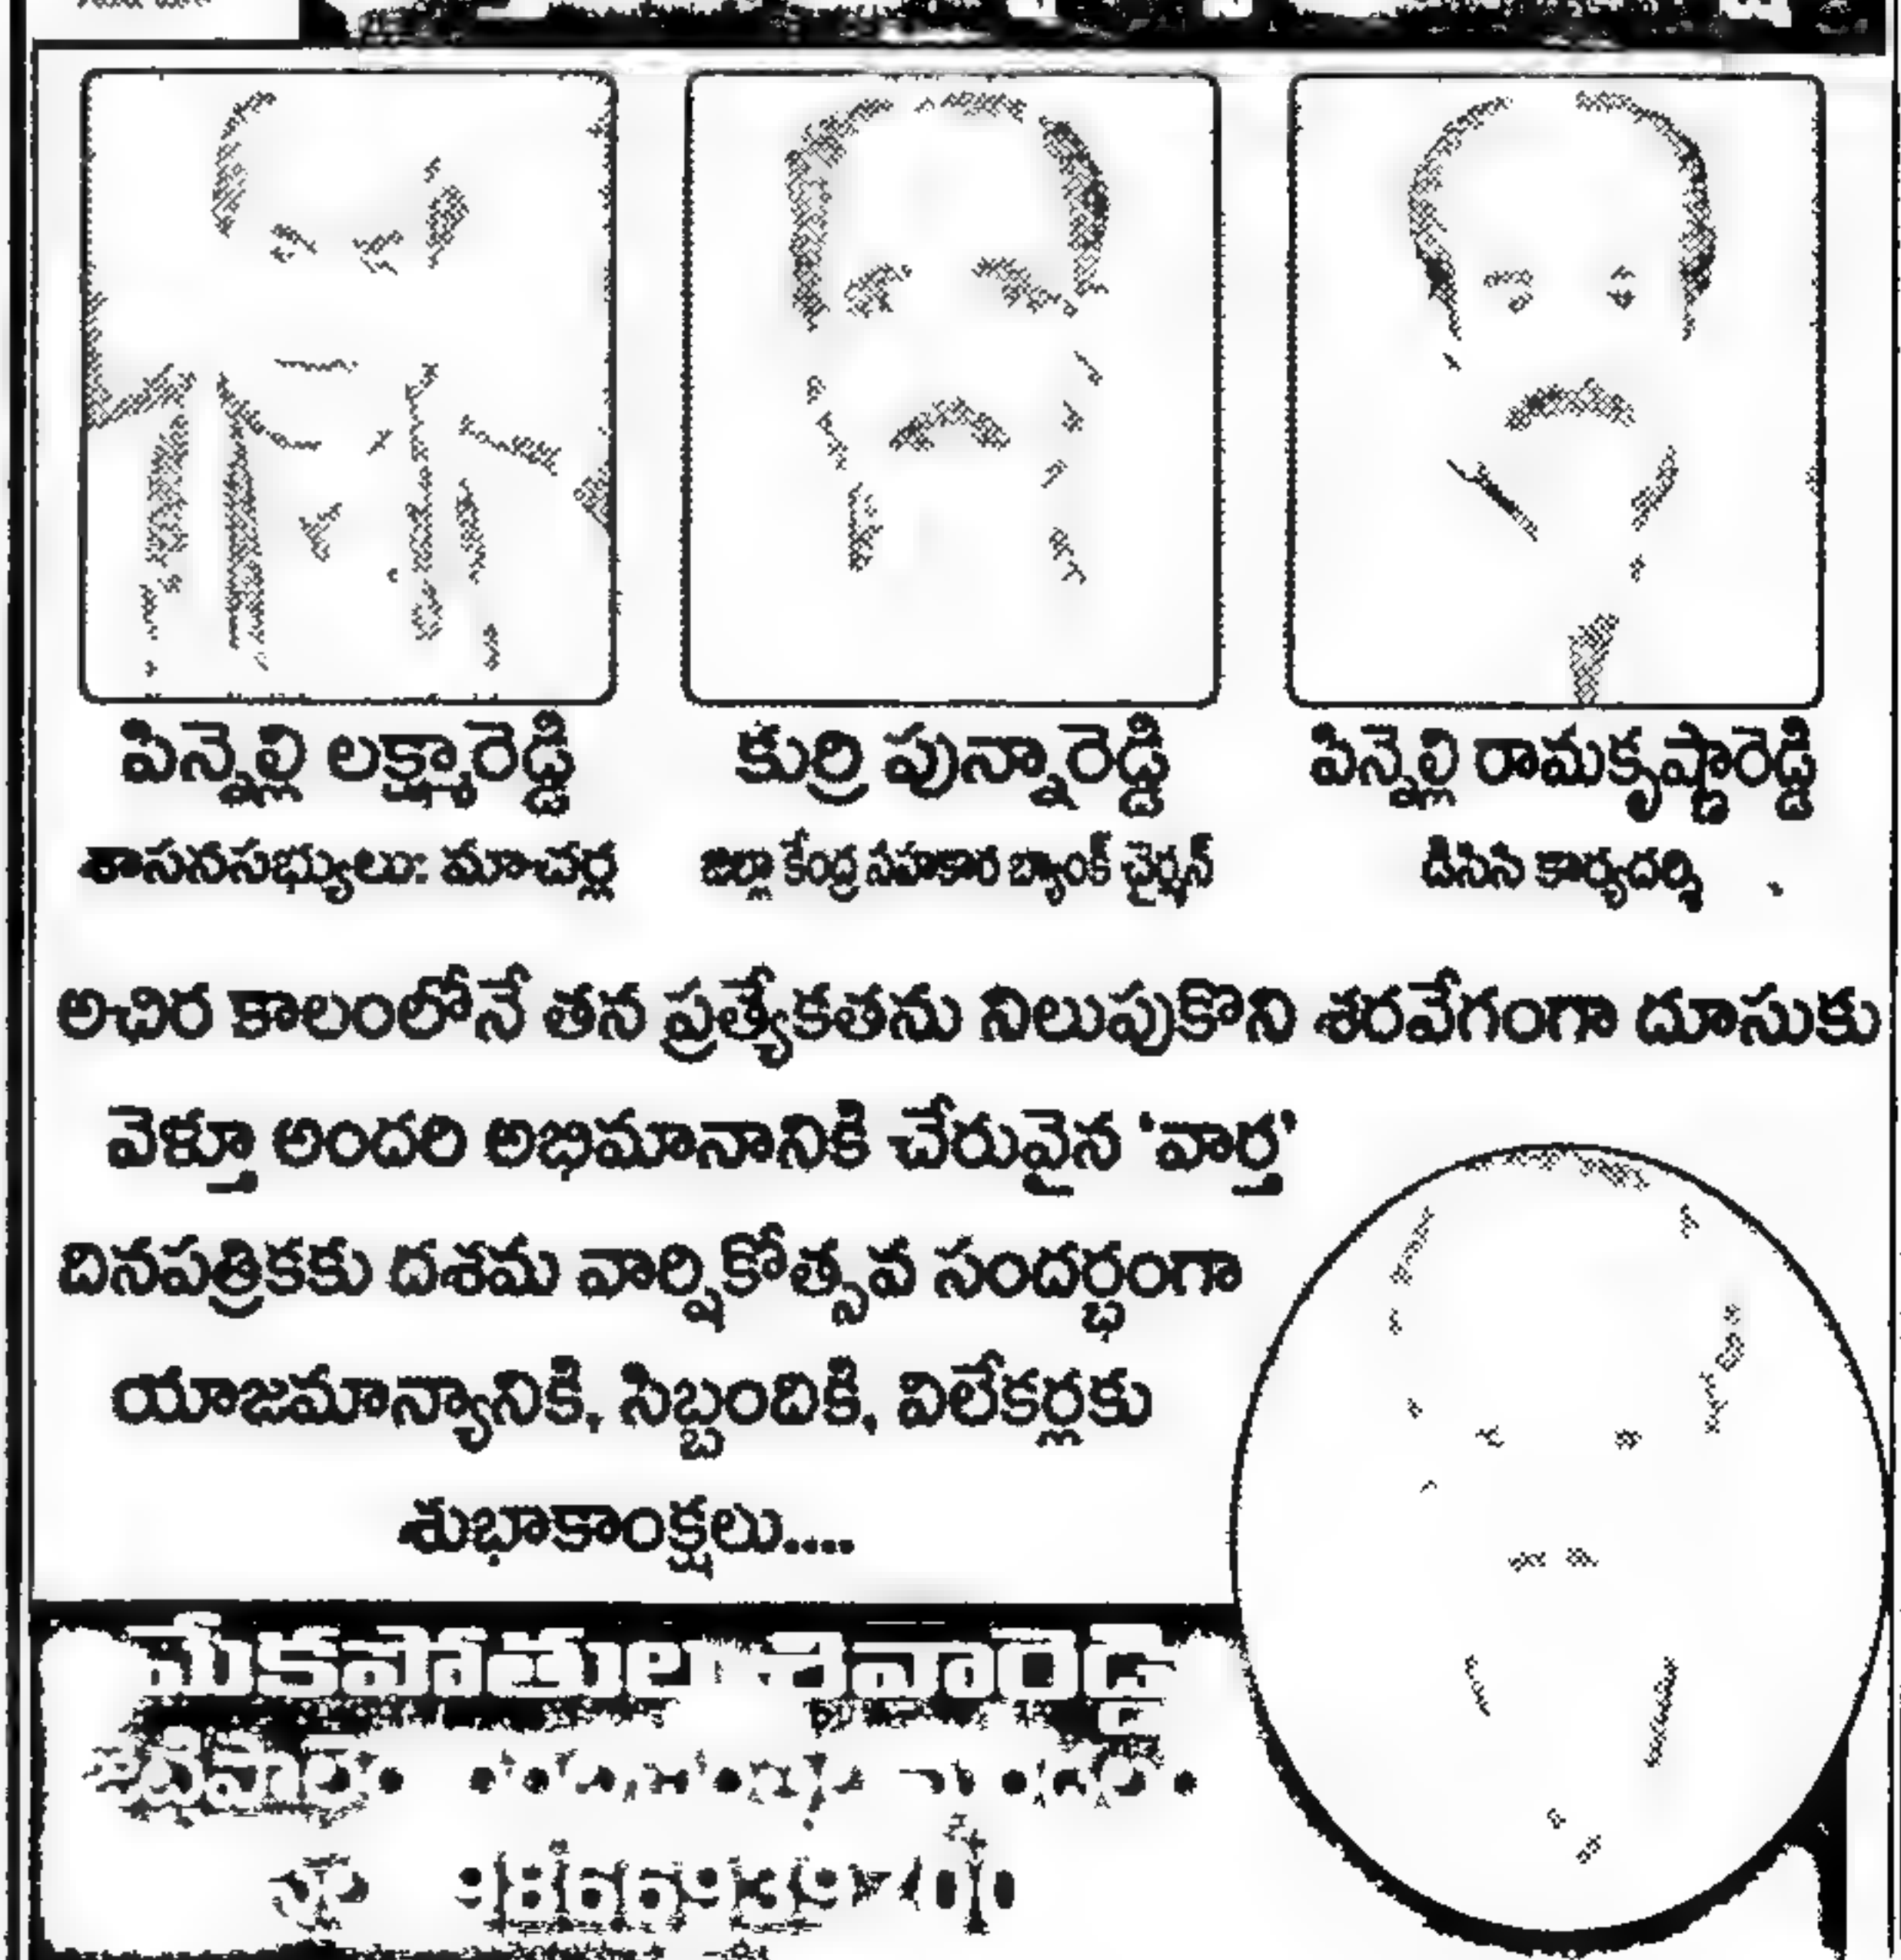 పిన్నెల్లి లక్ష్మారెడ్డి
శాసనసభ్యులు: మాచర్ల
కుర్రి పున్నారెడ్డి
జిల్లా కేంద్ర సహకార బ్యాంక్ చైర్మన్
పిన్నెల్లి రామకృష్ణారెడ్డి
డిసిసి కార్యదర్శి
అచిర కాలంలోనే తన ప్రత్యేకతను నిలుపుకొని శరవేగంగా దూసుకు
వెళ్తూ అందరి అభిమానానికి చేరువైన ‘వార్త’
దినపత్రికకు దశమ వార్షికోత్సవ సందర్భంగా
యాజమాన్యానికి, సిబ్బందికి, విలేకర్లకు
శుభాకాంక్షలు....
మేకపోతుల శివారెడ్డి